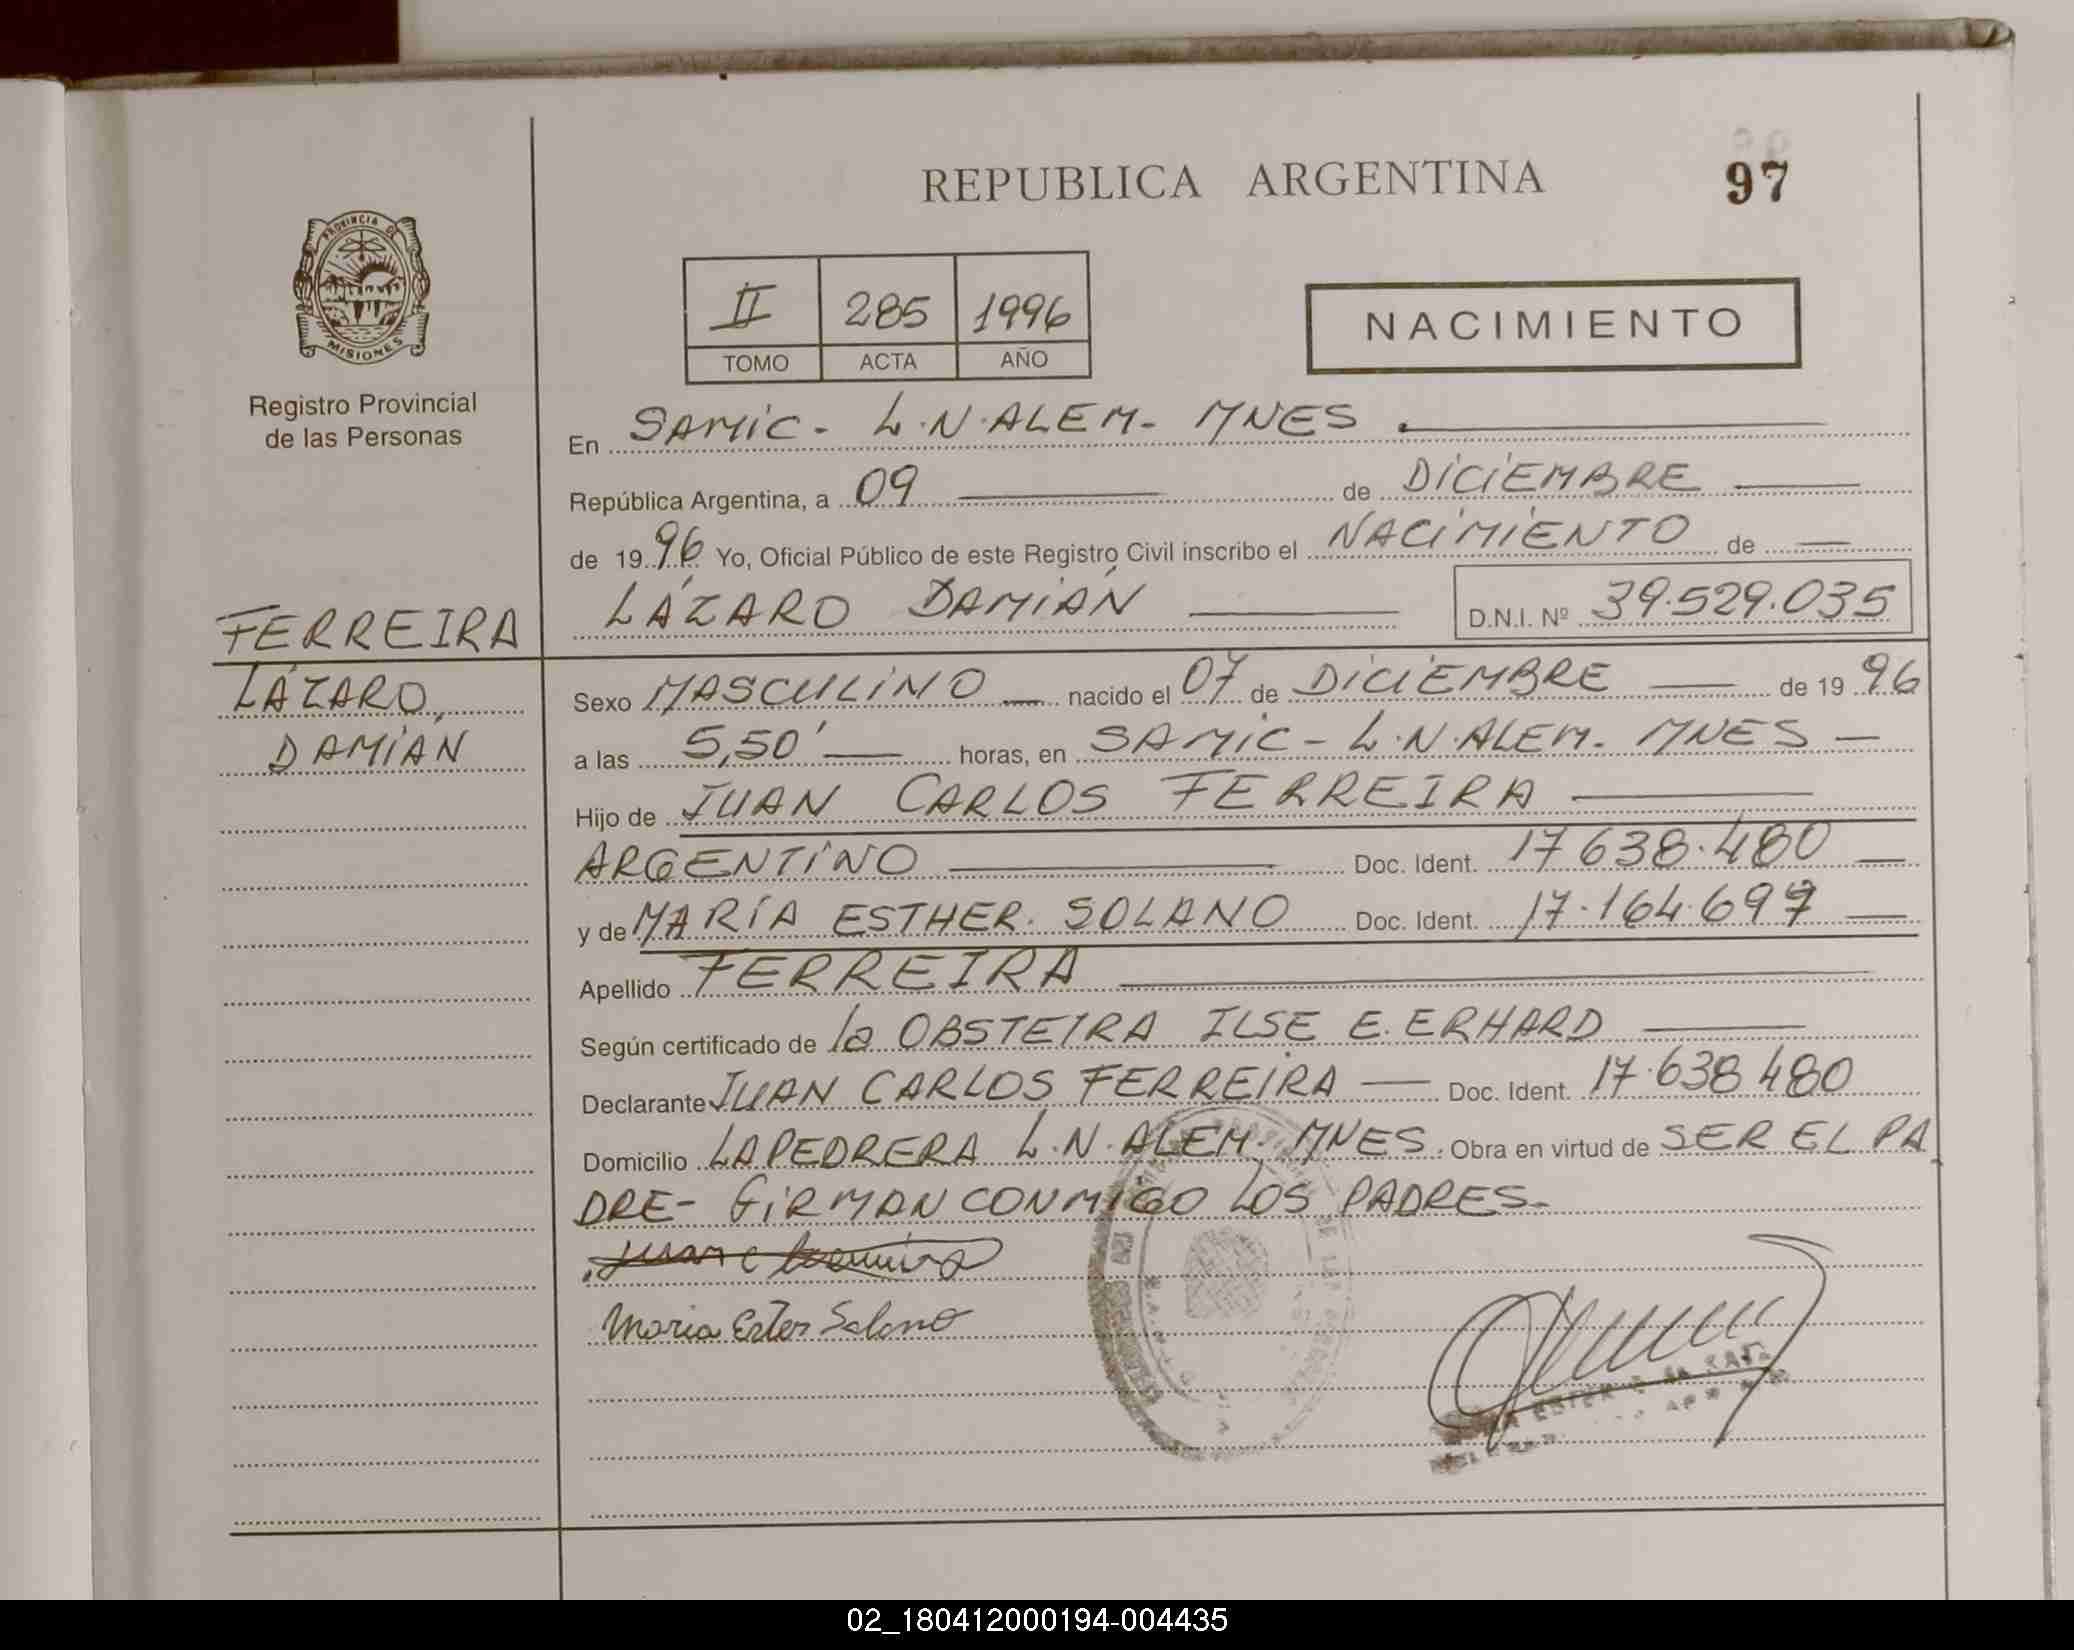 REPUBLICA ARGENTINA
97
PROVINCIA DE
MISIONES
Registro Provincial
de las Personas
II 285 1996
TOMO ACTA AÑO
NACIMIENTO
En SAMIC - L.N.ALEM - MNES.
República Argentina, a 09 de DICIEMBRE
de 1996 Yo, Oficial Público de este Registro Civil inscribo el NACIMIENTO de
LÁZARO DAMIÁN D.N.I. Nº 39.529.035
FERREIRA
LÁZARO,
DAMIÁN
Sexo MASCULINO nacido el 07 de DICIEMBRE de 1996
a las 5,50' horas, en SAMIC - L.N.ALEM. MNES -
Hijo de JUAN CARLOS FERREIRA
ARGENTINO Doc. Ident. 17.638.480
y de MARÍA ESTHER SOLANO Doc. Ident. 17.164.697
Apellido FERREIRA
Según certificado de la OBSTETRA ILSE E. ERHARD
Declarante JUAN CARLOS FERREIRA Doc. Ident. 17.638.480
Domicilio LA PEDRERA L.N.ALEM. MNES. Obra en virtud de SER EL PA
DRE - FIRMAN CONMIGO LOS PADRES.-
Juan C Ferreira
Maria Ester Solano
02_180412000194-004435